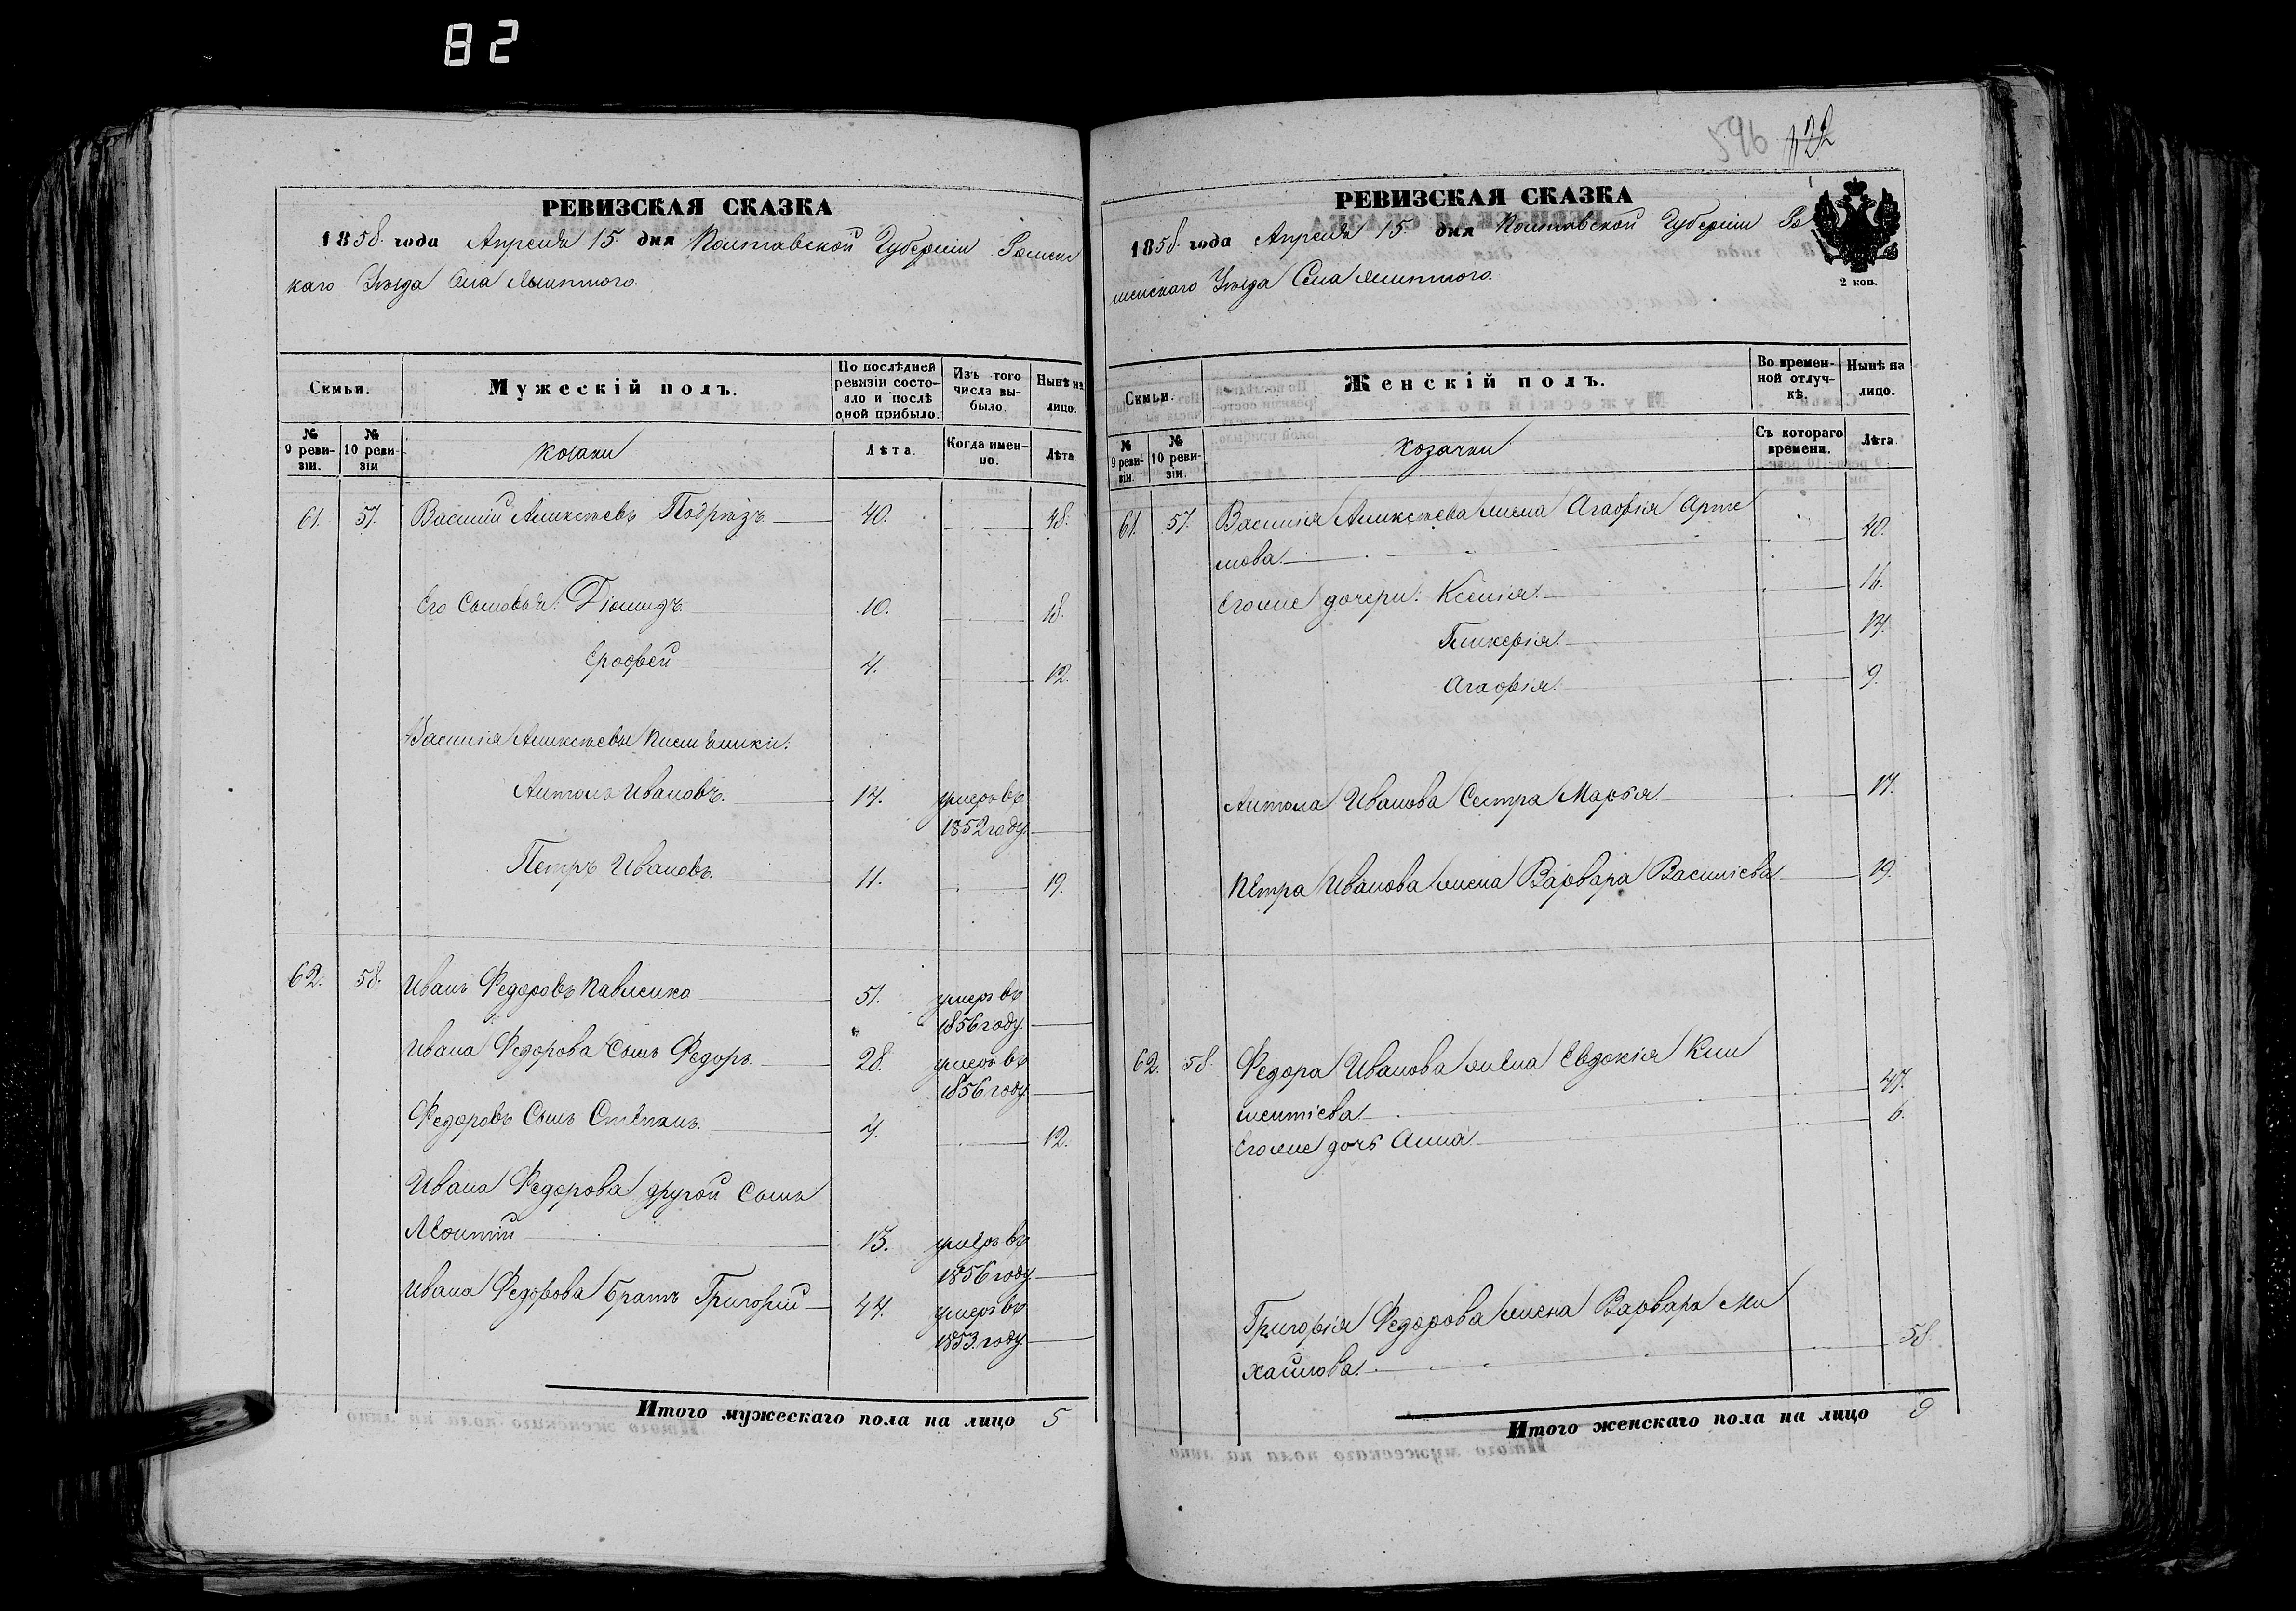 82
РЕВИЗСКАЯ СКАЗКА
1858. года Апреля 15. дня Полтавской Губерніи Роменс
каго Уѣзда Села
Семьи.
Мужескій полъ.
По послѣдней ревизіи состояло и послѣ оной прибыло.
Изъ того числа выбыло.
Нынѣ на лицо.
№ 9 ревизіи.
№ 10 ревизіи
Козаки
Лѣта.
Когда именно.
Лѣта.
61. 57. Василій Алексѣевъ Подрѣзъ 40. 48.
Его Сыновья: Діомидъ 10. 18.
Ерофей 4. 12.
Василія Алексѣева племѣники:
Антонъ Ивановъ. 14. умеръ въ
1852 году.
Петръ Ивановъ. 11. 19.
62. 58. Иванъ Федоровъ Павленко 51. умеръ въ
1856 году.
Ивана Федорова Сынъ Федоръ. 28. умеръ въ
1856 году
Федоровъ Сынъ Степанъ. 4. 12.
Ивана Федорова другой Сынъ
Леонтій 13. умеръ въ
1856 году
Ивана Федорова братъ Григорій 44. умеръ въ
1853. году.
Итого мужескаго пола на лицо 5
596 122
РЕВИЗСКАЯ СКАЗКА
1858. года Апреля 15. дня Полтавской Губерніи Ро
менскаго Уѣзда Села
2 коп.
Семьи.
Женскій полъ.
Во временной отлучкѣ.
Нынѣ на лицо.
№ 9 ревизіи.
№ 10 ревизіи.
Козачки
Съ котораго времени.
Лѣта.
61. 57. Василія Алексѣева жена Агафія Арте
мова. 40.
Его же дочери: Ксенія. 16.
Гликерія. 14.
Агафія. 9.
Антона Иванова Сестра Марья. 17.
Петра Иванова жена Варвара Василіева 19.
62. 58. Федора Иванова жена Евдокія Кли
ментіева 47.
Его же дочь Анна 6.
Григорія Федорова жена Варвара Ми
хайлова. 58.
Итого женскаго пола на лицо 9